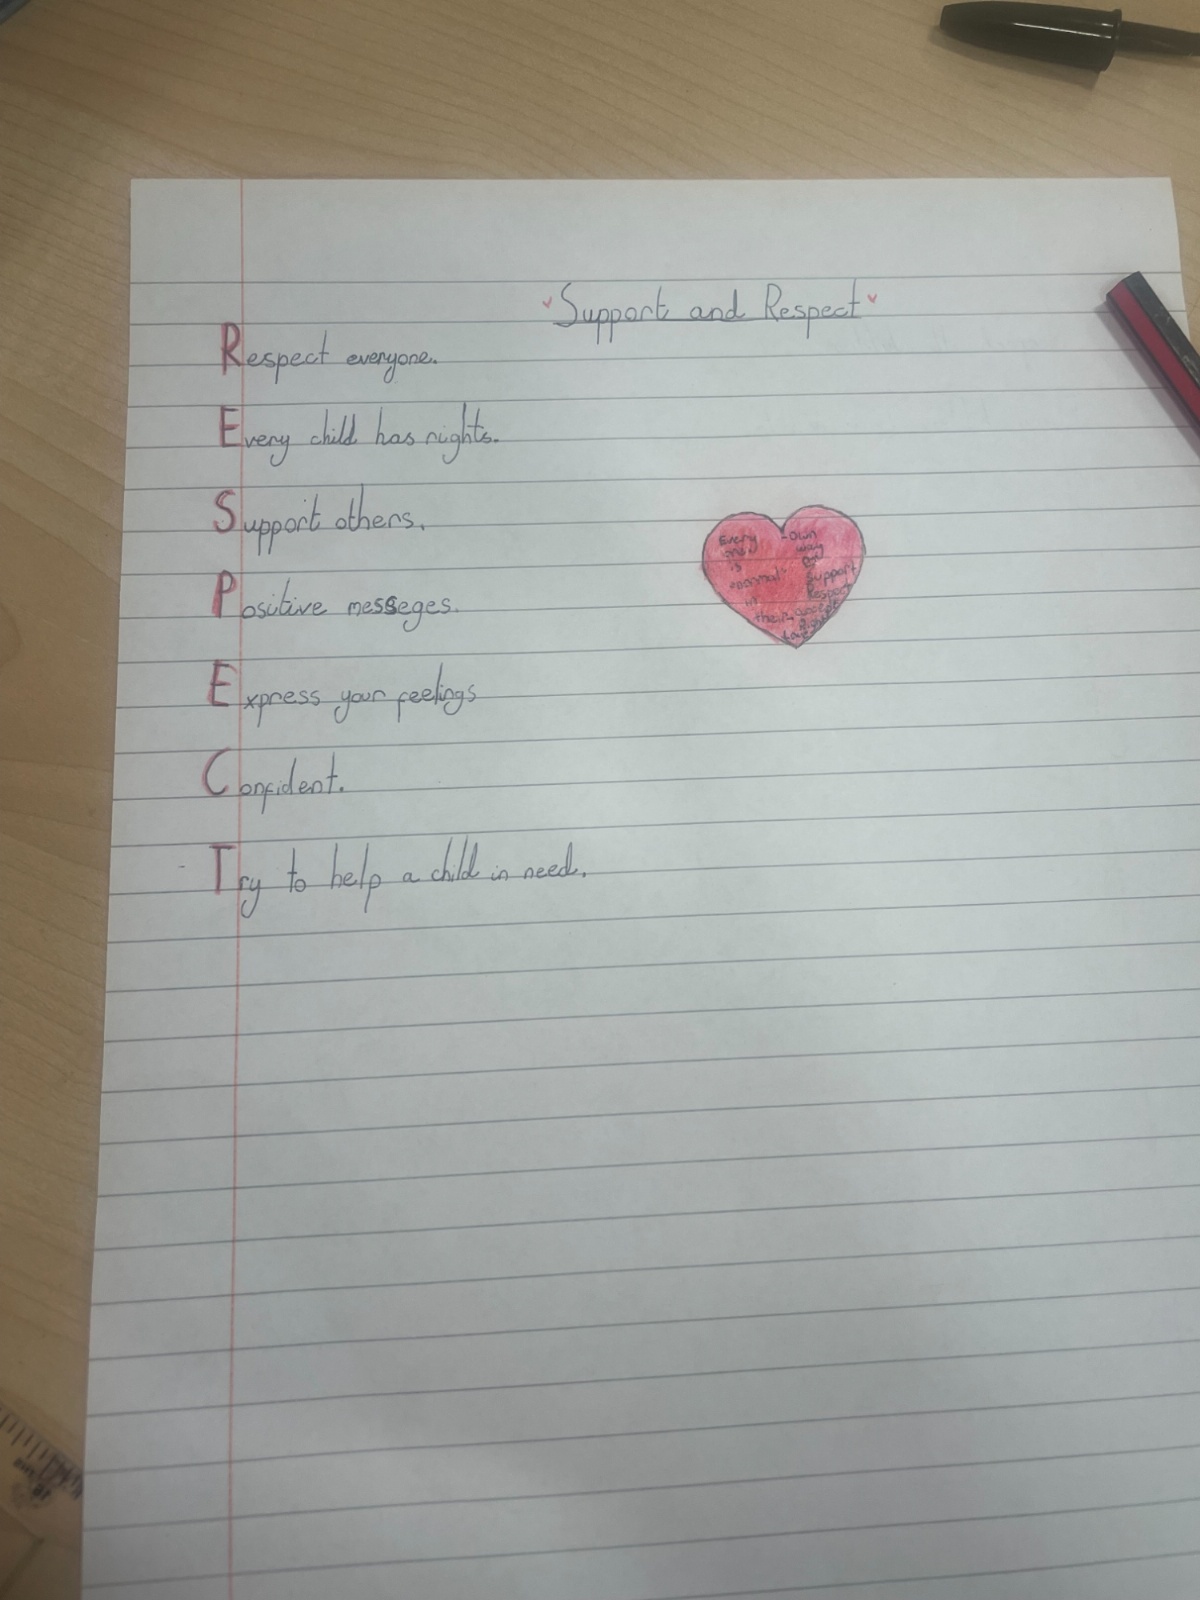 Support and Respect
Respect everyone.
Every child has rights.
Support others.
Positive messeges.
Express your feelings
Confident.
Try to help a child in need.
Every
one
is
"normal"
in
their
own
way
Support
Respect
accept